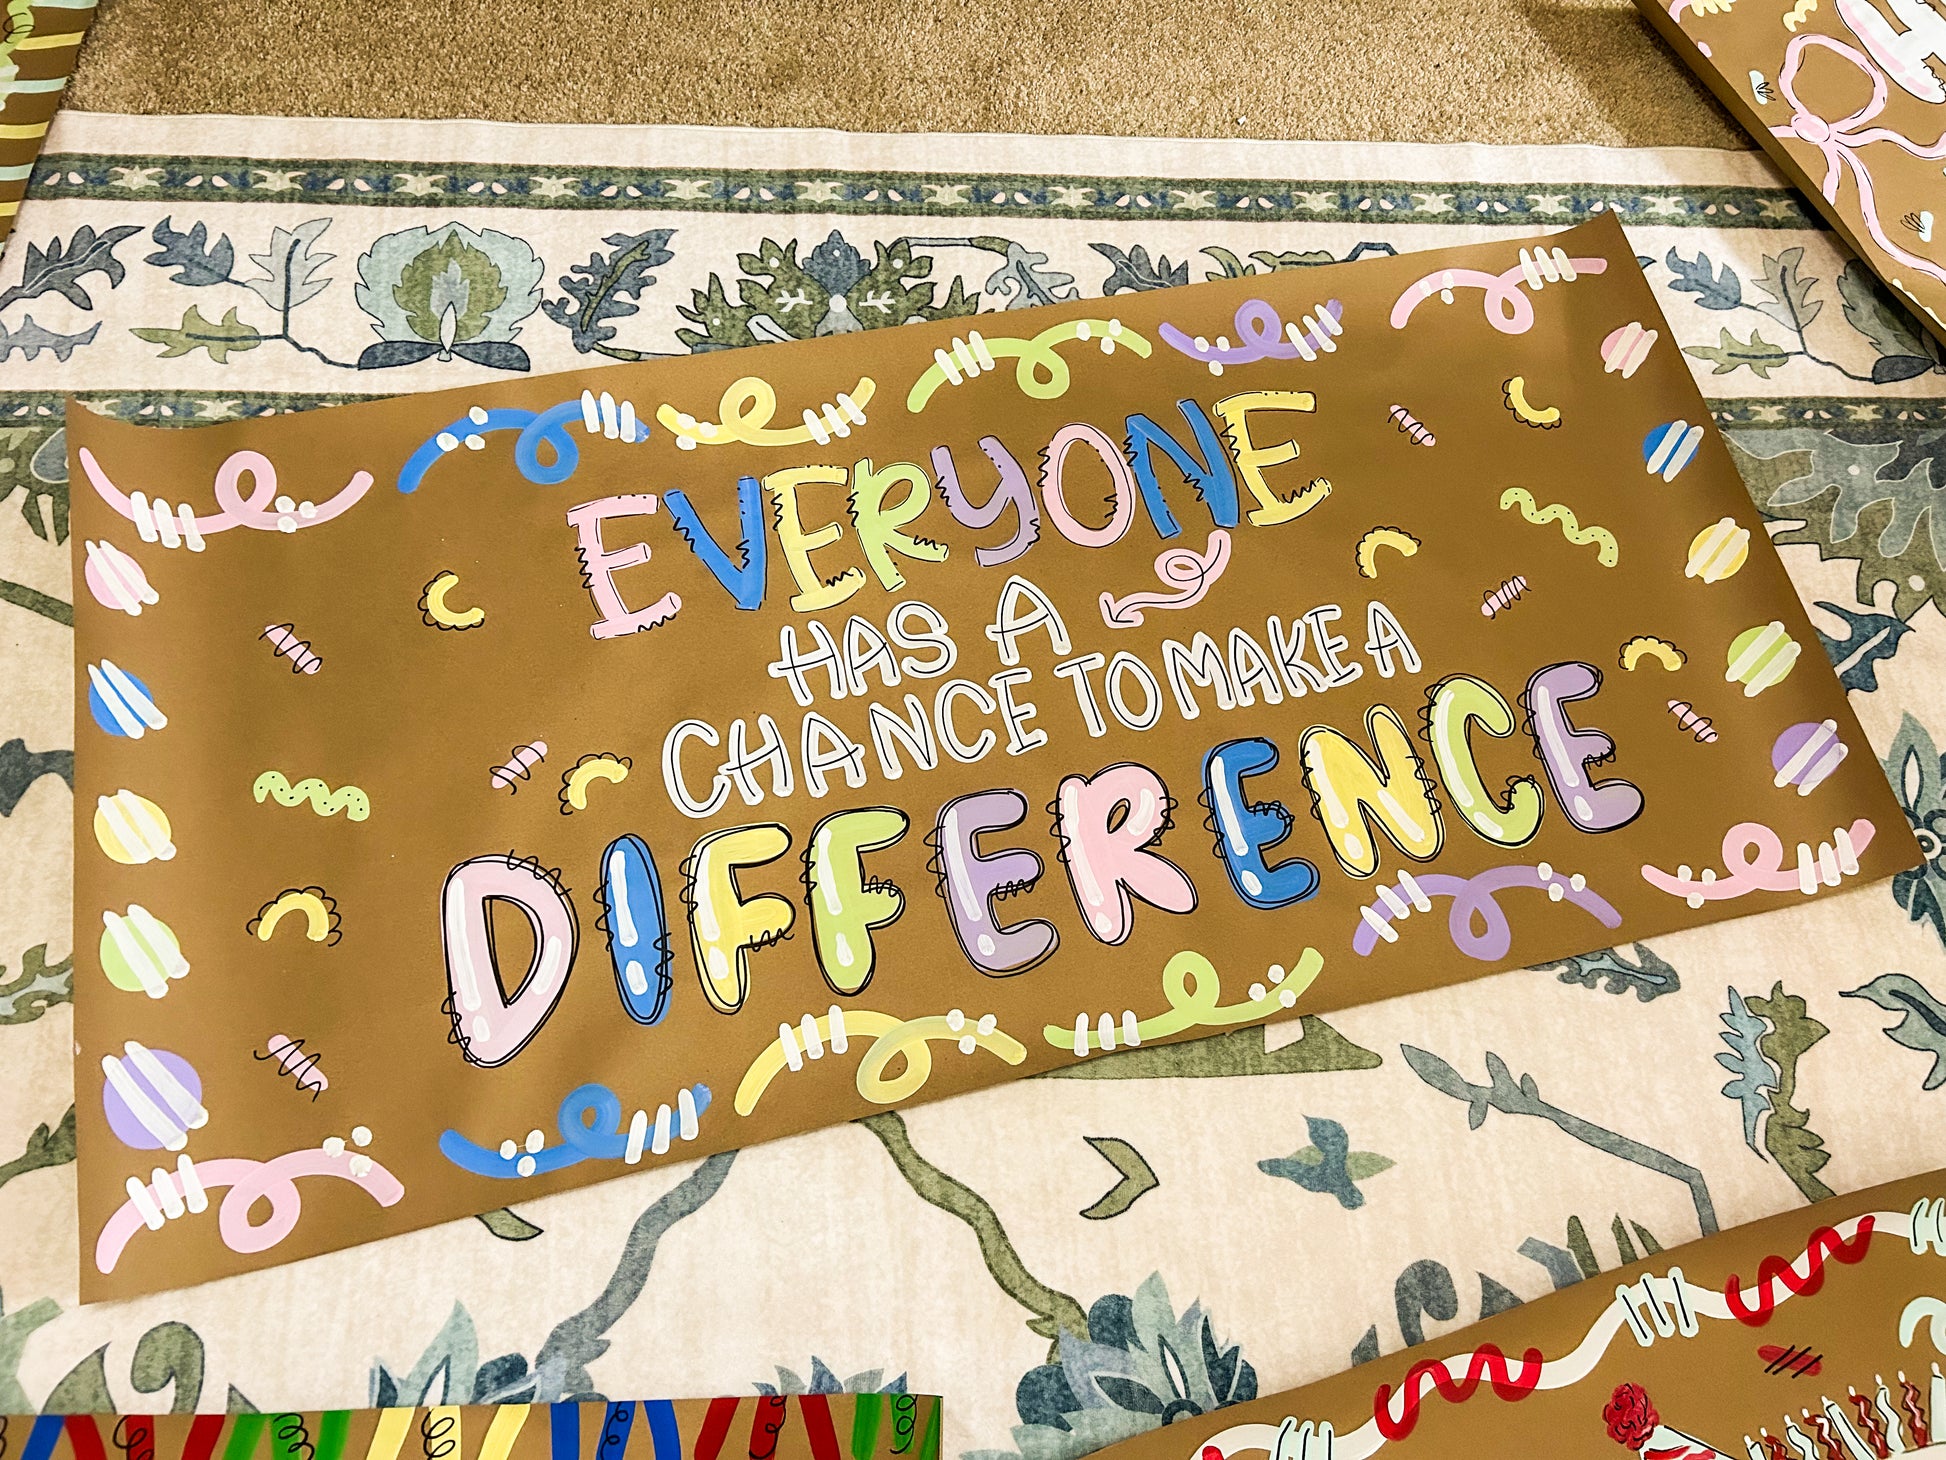 EVERYONE
HAS A
CHANCE TO MAKE A
DIFFERENCE